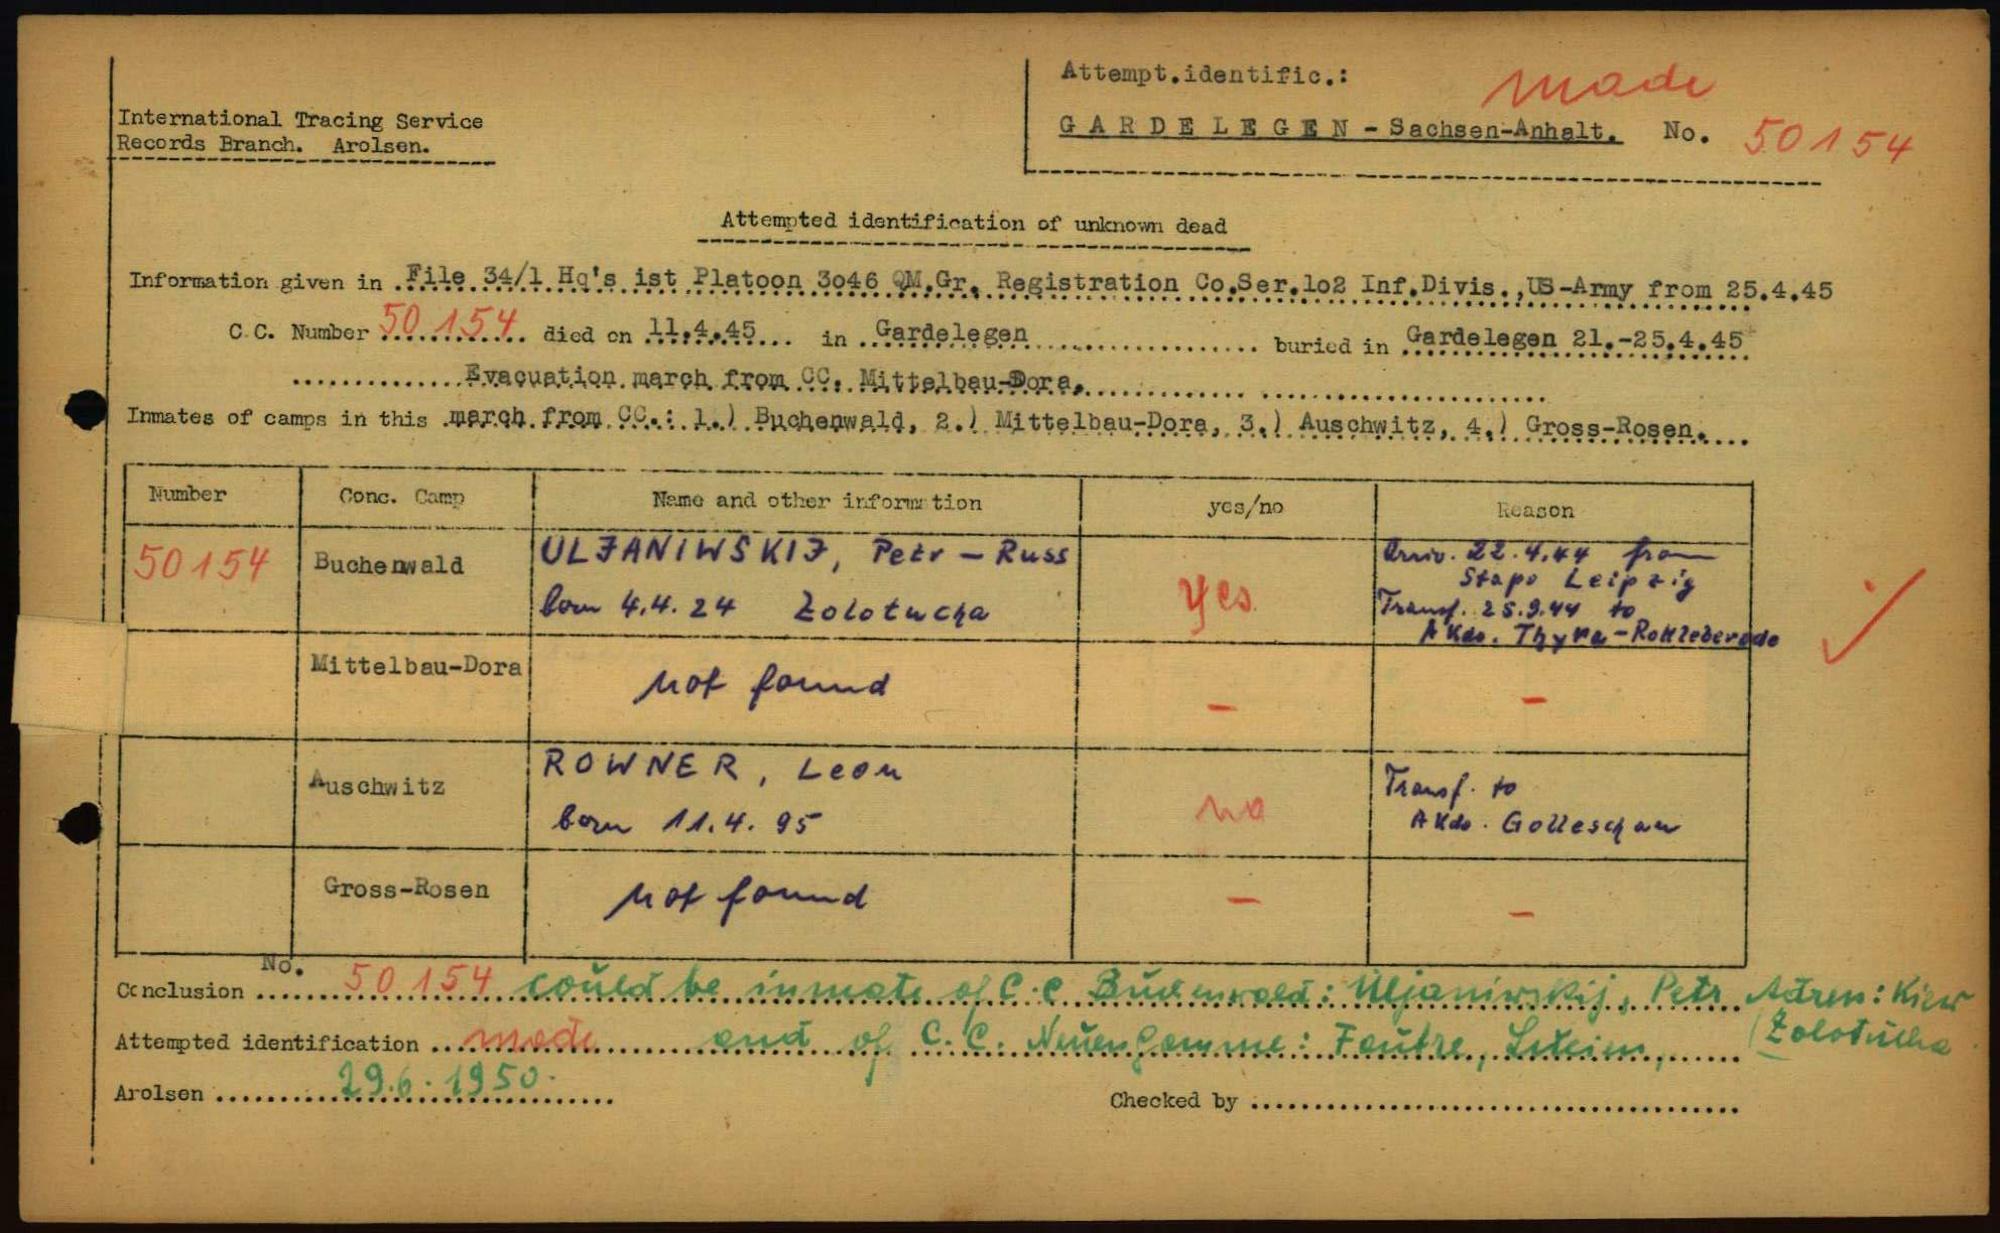 Attempt.identific.: made
International Tracing Service
Records Branch. Arolsen.
GARDELEGEN - Sachsen-Anhalt. No. 50154
Attempted identification of unknown dead
Information given in File 34/1 Hq's ist Platoon 3o46 QM.Gr. Registration Co.Ser.1o2 Inf.Divis.,US-Army from 25.4.45
C.C. Number 50154 died on 11.4.45 in Gardelegen buried in Gardelegen 21.-25.4.45
Evacuation march from CC. Mittelbau-Dora.
Inmates of camps in this march from CC.: 1.) Buchenwald, 2.) Mittelbau-Dora, 3.) Auschwitz, 4.) Gross-Rosen.
Number Conc. Camp Name and other information yes/no Reason
50154 Buchenwald ULJANIWSKIJ, Petr - Russ
born 4.4.24 Zolotucha
yes
Arriv. 22.4.44 from
Stapo Leipzig
Transf. 25.9.44 to
AKdo. Thyra-Rottleberode
Mittelbau-Dora not found - -
Auschwitz ROWNER, Leon
born 11.4.95
no
Transf. to
AKdo. Golleschau
Gross-Rosen not found - -
No.
Conclusion 50154 could be inmate of C.C Buchenwald: Uljaniwskij, Petr Adress: Kiew
Attempted identification made and of C.C. Neuengamme: Zolotucha
Arolsen 29.6.1950.
Checked by